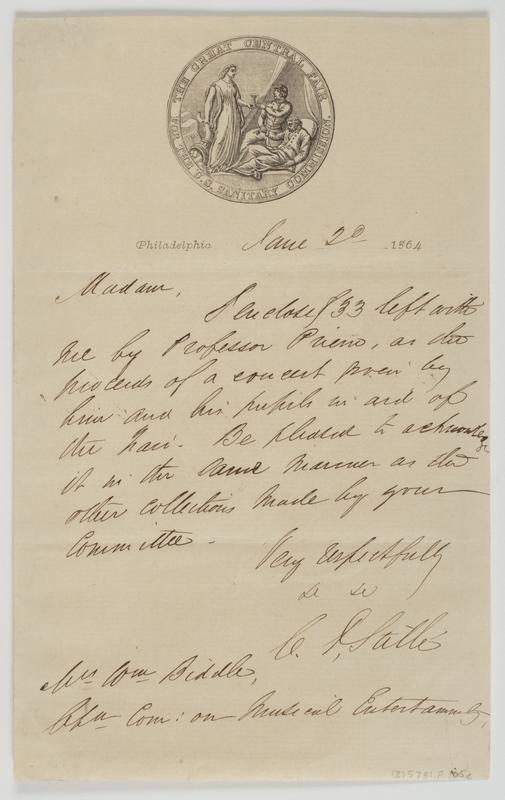 THE GREAT CENTRAL FAIR
FOR THE U.S. SANITARY COMMISSION.
Philadelphia June 2d 1864
Madam,
I enclose $33 left with
me by Professor as the
proceeds of a concert given by
him and his pupils in aid of
the Fair. Be pleased to acknowledge
it in the same manner as the
other collections made by your
Committee.
Very respectfully
C. J. Stillé
Mrs Wm Biddle,
Chn Com: on Musical Entertainments,